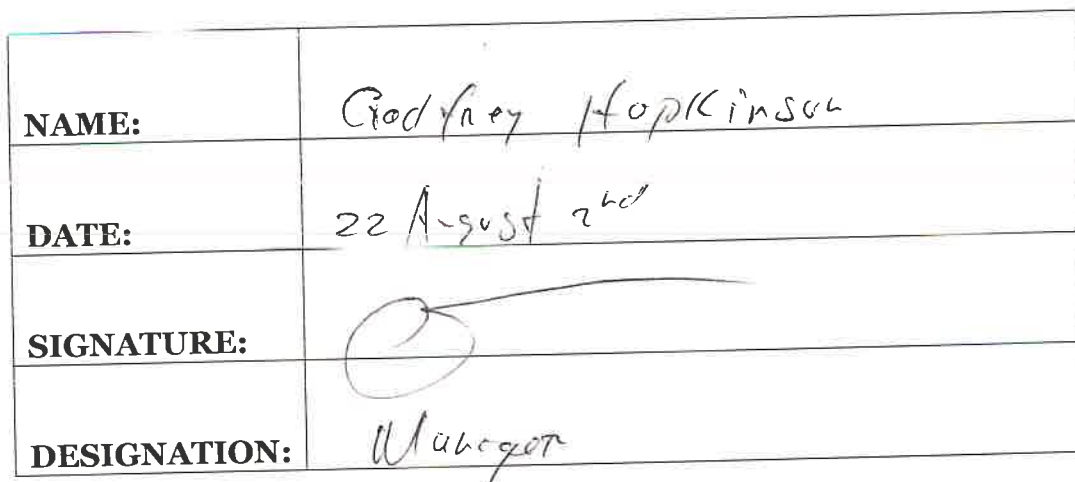 NAME: Godfrey Hopkinson
DATE: 22 August 2nd
SIGNATURE:
DESIGNATION: Manager